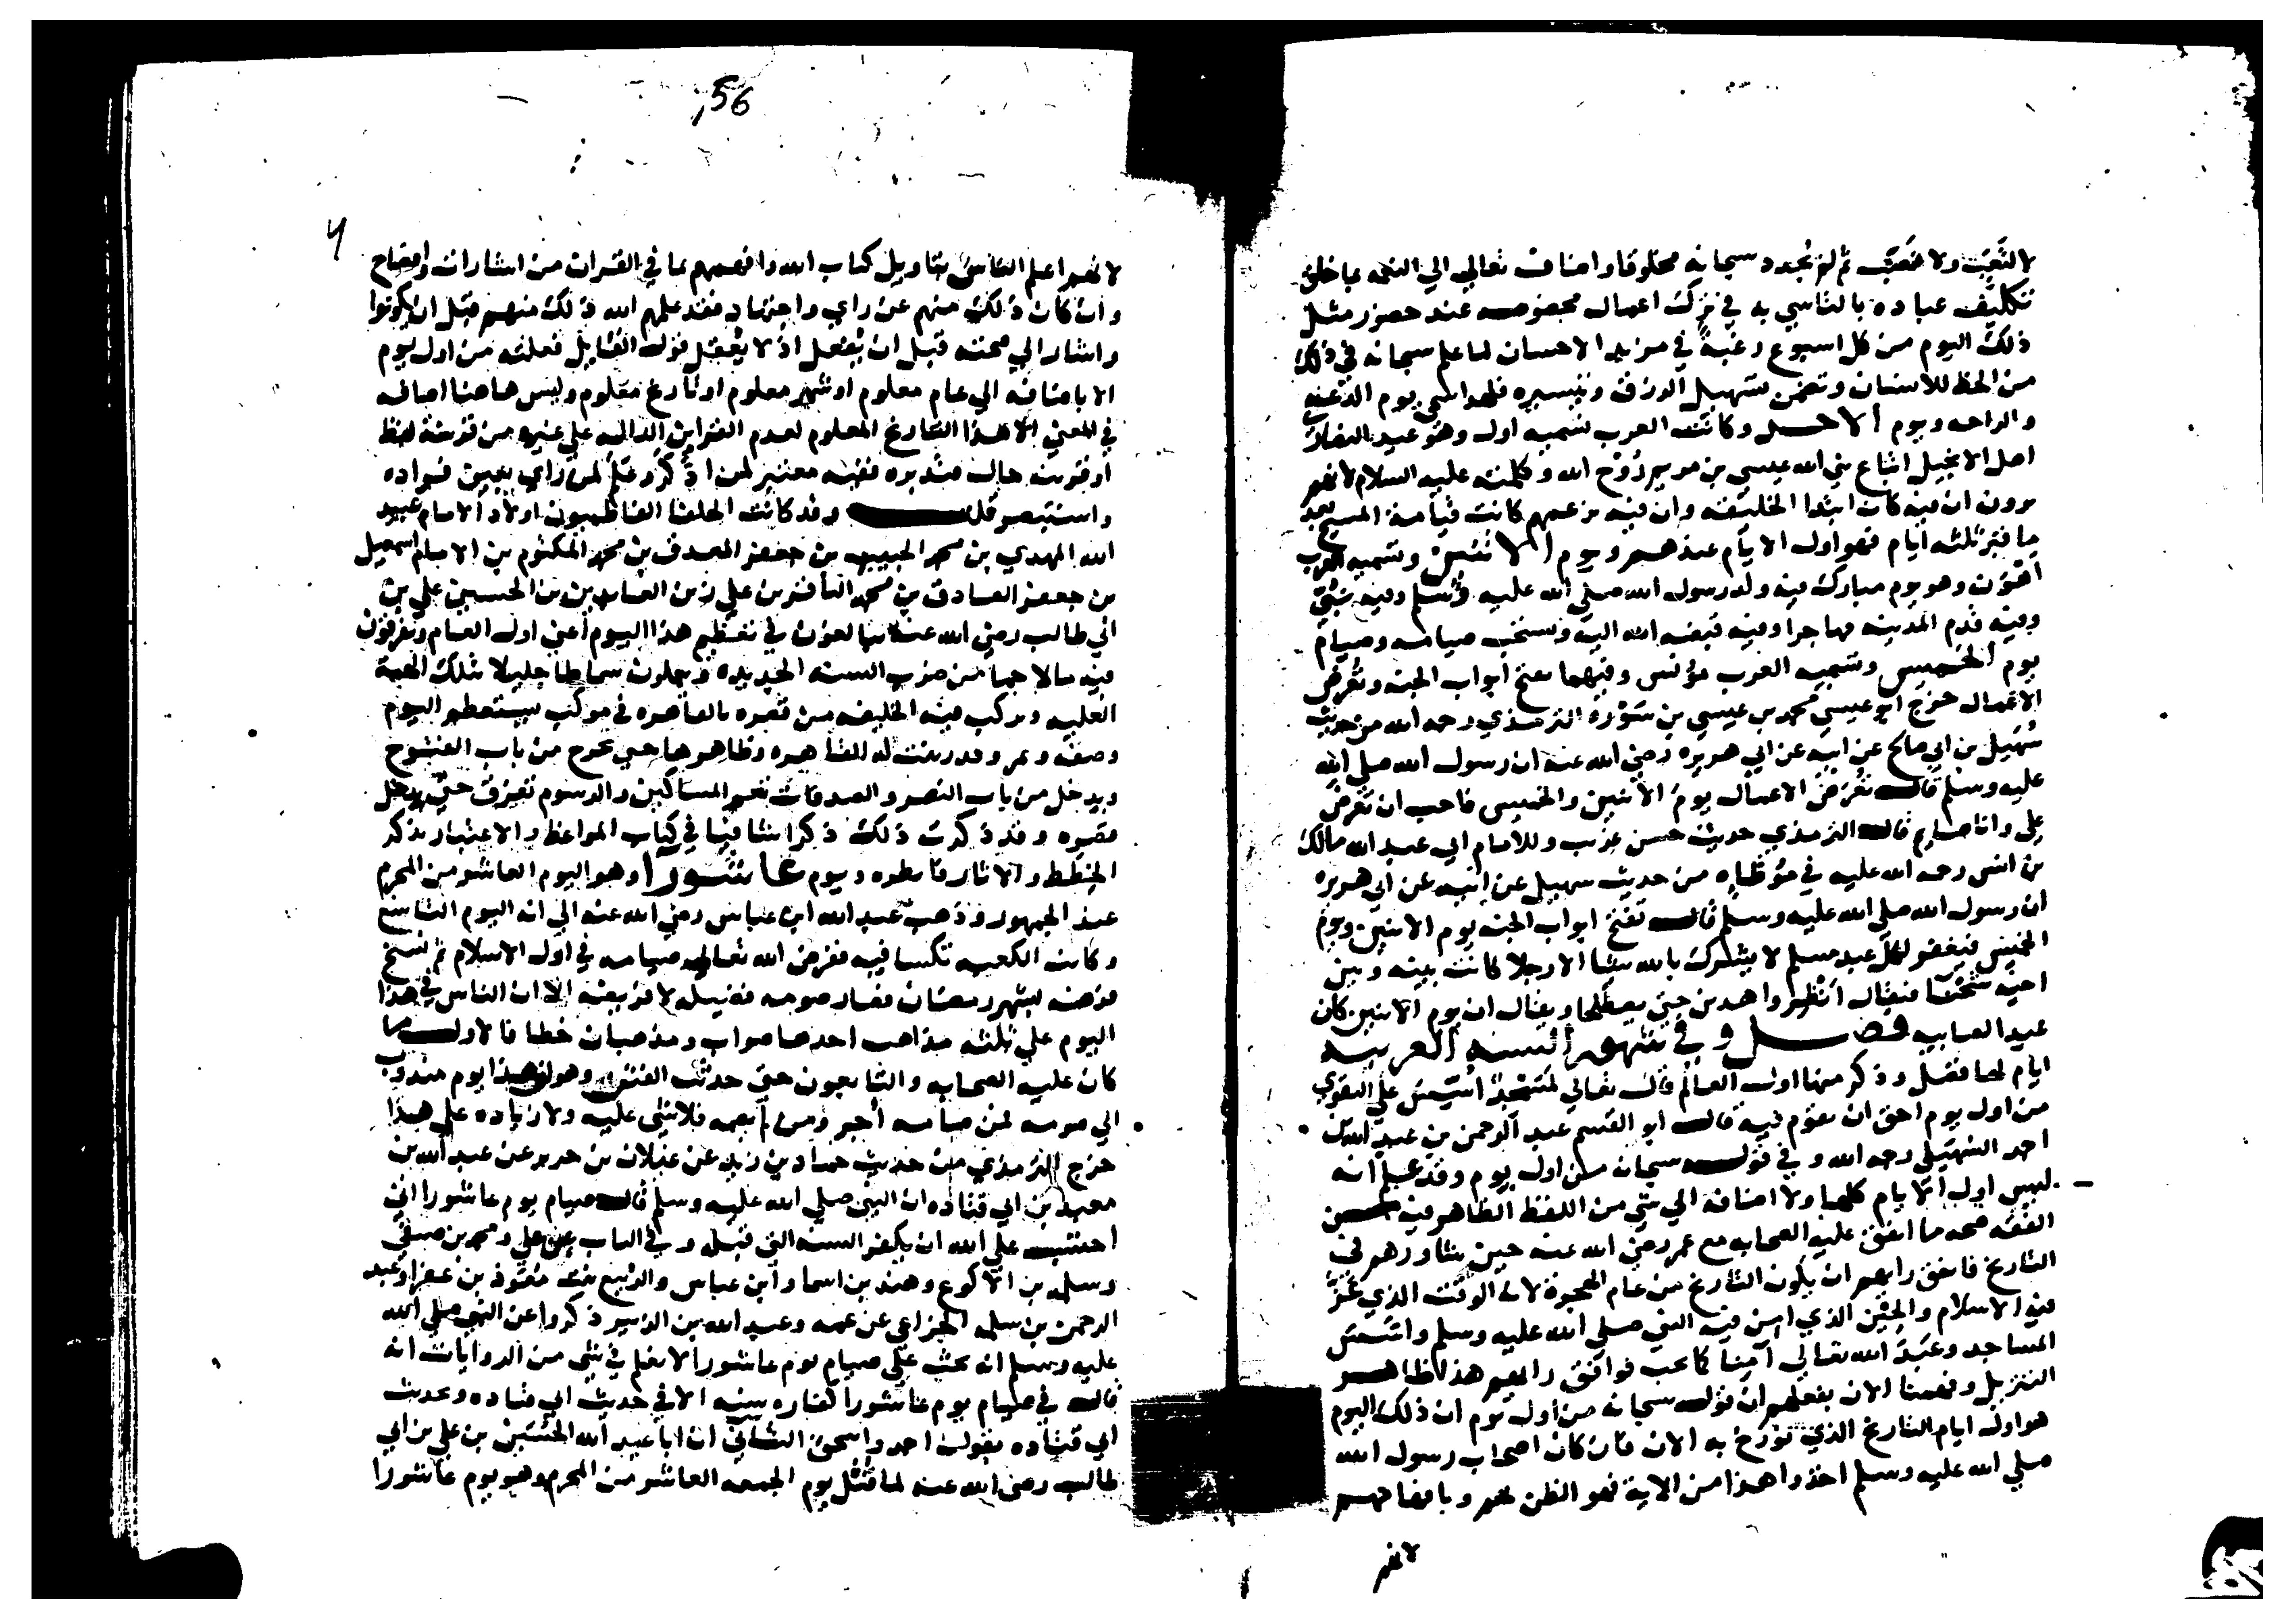 لا لتَعَب ولا نصَب ثم لم يُجدد سبحانه مخلوقا واضاف تعالي الي النعمه بما خلق
تكليف عباده بالتاسي به في ترك اعمال مخصوصه عند حضور مثل
ذلك اليوم من كل اسبوع رغبةً في مزيد الاحسان لما علم سبحانه في ذلك
من الحظ للانسان وتضمن تسهيل الرزق وتيسيره فلهذا سمي يوم الدعه
والراحه ويوم الاحد وكانت العرب تسميه اول وهو عيد النصارى
اهل الانجيل اتباع نبي الله عيسي بن مريم رُوْح الله وكلمته عليه السلام لانهم
يرون ان فيه كان ابتدا الخليقه وان فيه بزعمهم كانت قيامة المسيح بعد
ما قبر ثلثه ايام فهو اول الايام عندهم ويوم الاثنين وتسميه العرب
اهْوَن وهو يوم مبارك فيه ولد رسول الله صلي الله عليه وسلم وفيه نُبّي
وفيه قدم المدينه مهاجرا وفيه قبضه الله اليه ويستحب صيامه وصيام
يوم الخميس وتسميه العرب مؤنس وفيهما تفتح ابواب الجنه وتُعرض
الاعمال خرج ابو عيسي محمد بن عيسي بن سَوْرة الترمذي رحمه الله من حديث
سُهَيل بن ابي صالح عن ابيه عن ابي هريره رضي الله عنه ان رسول الله صلي الله
عليه وسلم قال تُعْرَض الاعمال يوم الاثنين والخميس فاحب ان يُعرض
عملي وانا صايم قال الترمذي حديث حسن غريب وللامام ابي عبد الله مالك
بن انس رحمه الله عليه في مُوَطّاه من حديث سهيل عن ابيه عن ابي هريره
ان رسول الله صلي الله عليه وسلم قال تُفتح ابواب الجنه يوم الاثنين ويوم
الخميس فيغفر لكل عبد مسلم لا يشرك بالله شيئا الا رجلا كانت بينه وبين
اخيه شحنا فيقال انظروا هذين حتي يصطلحا ويقال ان يوم الاثنين كان
عيد الصابيه فصل وفي شهور السنه العربيه
ايام لها فضل وذكر منها اول العام قال تعالي لمَسْجدٌ اُسّس علي التقوي
من اول يوم احق ان تقوم فيه قال ابو القسم عبد الرحمن بن عبد الله بن
احمد السُهَيلي رحمه الله وفي قوله سبحانه من اول يوم وقد علم انه
ليس اول الايام كلها ولا اضافه الي شي من اللفظ الظاهر فيه من
الفقه صحه ما اتفق عليه الصحابه مع عمر رضي الله عنه حين شاورهم في
التاريخ فاتفق رايهم ان يكون التاريخ من عام الهجرة لانه الوقت الذي عَزّ
فيه الاسلام والحِيْن الذي امن فيه النبي صلي الله عليه وسلم واُسّست
المساجد وعَبَدَ الله تعالي آمنا كما يحب فوافق رايهم هذا ظاهر
التنزيل وفهمنا الان بفعلهم ان قوله سبحانه من اول يوم ان ذلك اليوم
هو اول ايام التاريخ الذي تؤرخ به الان فان كان اصحاب رسول الله
صلي الله عليه وسلم اخذوا هذا من الاية فهو الظن بهم وبافهامهم
لانهم
56
لانهم اعلم الناس بتاويل كتاب الله وافهمهم بما في القران من اشارات وافصاح
وان كان ذلك منهم عن راي واجتهاد فقد علمهم الله ذلك منهم قبل ان يكونوا
واشار الي صحته قبل ان يُفعل اذ لا يُعْقل قول القايل فعلته من اول يوم
الا باضافه الي عام معلوم او شهر معلوم او تاريخ معلوم وليس هاهنا اضافه
في المعني الا هذا التاريخ المعلوم لعدم القراين الداله علي غيره من قرينة لفظ
او قرينه حال فتدبره ففيه معتبر لمن اذّكر وعِلم لمن راي بعين فواده
واستبصر قلت وقد كانت الخلفا الفاطميون اولاد الامام عبيد
الله المهدي بن محمد الحبيب بن جعفر المصدق بن محمد المكتوم بن الامام اسمعيل
بن جعفر الصادق بن محمد الباقر بن علي زين العابدين بن الحسين علي بن
ابي طالب رضي الله عنه يبالغون في تعظيم هذا اليوم أعني اول العام ويفرقون
فيه مالا جما من ضرب السنه الجديده ويعملون سماطا جليلا بتلك الهمة
العليه ويركب فيه الخليفه من قصره بالقاهره في موكب يستعظم اليوم
وصفه وعمر وقد زينت له القاهره وظاهرها حتي يخرج من باب الفتوح
ويدخل من باب النصر والصدقات تعم المساكين والرسوم تُفرَق حتي يدخل
قصره وقد ذكرت ذلك ذكرا شافيا في كتاب المواعظ والاعتبار بذكر
الخِطَط والاثار فانظره ويوم عاشورا وهو اليوم العاشر من المحرم
عند الجمهور وذهب عبد الله ابن عباس رضي الله عنه الي انه اليوم التاسع
وكانت الكعبه تكسا فيه ففرض الله تعالي صيامه في اول الاسلام ثم نسخ
فرضه بشهر رمضان فصار صومه فضيله لا فريضه الا ان الناس في هذا
اليوم علي ثلثه مذاهب احدها صواب ومذهبان خطا فالاول ما
كان عليه الصحابه والتابعون حتي حدثت الفتن وهو ان هذا يوم مندوب
الي صومه لمن صامه أجر ومن لم يصمه فلا شي عليه ولا زياده علي هذا
خرج الترمذي من حديث حماد بن زيد عن غيلان بن جرير عن عبد الله بن
معبد بن ابي قتاده ان النبي صلي الله عليه وسلم قال صيام يوم عاشورا اني
احتسب علي الله ان يكفر السنه التي قبله وفي الباب عن علي ومحمد بن صيفي
وسلمه بن الاكوع وهند بن اسما وابن عباس والرُبيع بنت مُعَوّذ بن عفرا وعبد
الرحمن بن سلمه الخزاعي عن عمه وعبد الله بن الزبير ذكروا عن النبي صلي الله
عليه وسلم انه حث علي صيام يوم عاشورا لا نعلم في شي من الروايات انه
قال في صيام يوم عاشورا كفاره سنه الا في حديث ابي قتاده وبحديث
ابي قتاده يقول احمد واسحق الثاني ان ابا عبد الله الحُسَين بن علي بن ابي
طالب رضي الله عنه لما قُتل يوم الجمعه العاشر من المحرم وهو يوم عاشورا